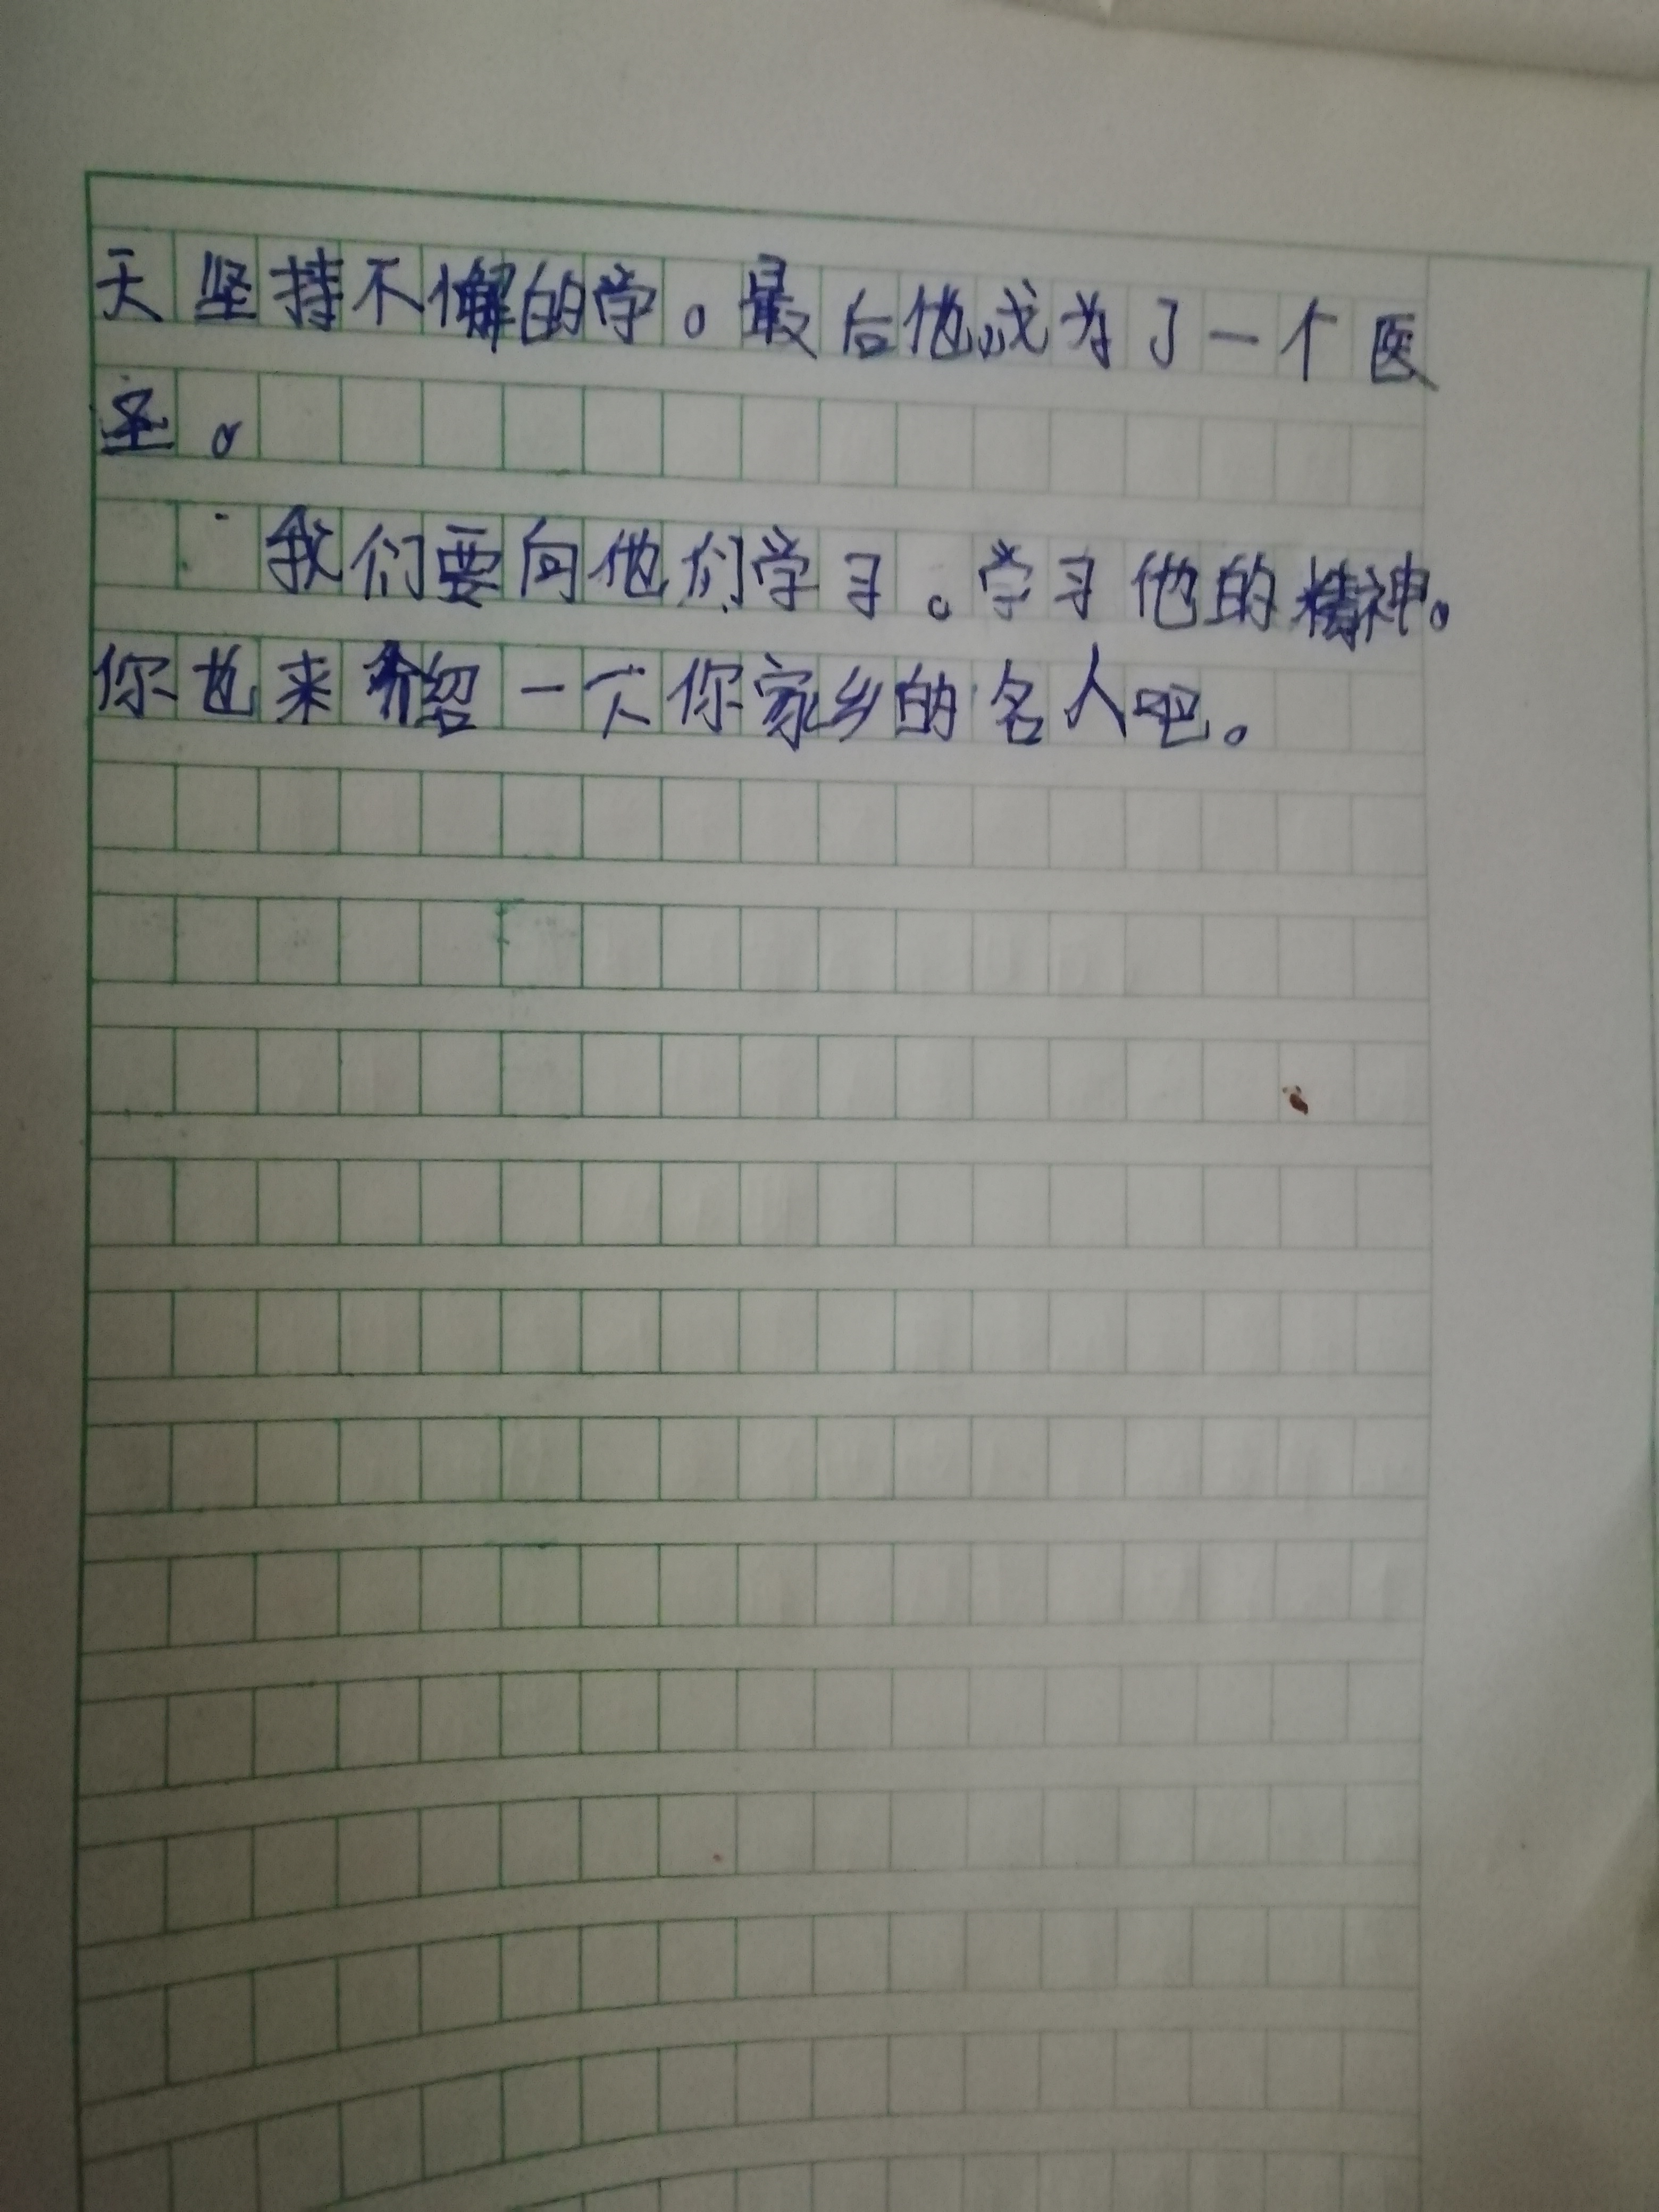 天坚持不懈的学。最后他成为了一个医
圣。
我们要向他们学习。学习他的精神。
你也来介绍一下你家乡的名人吧。